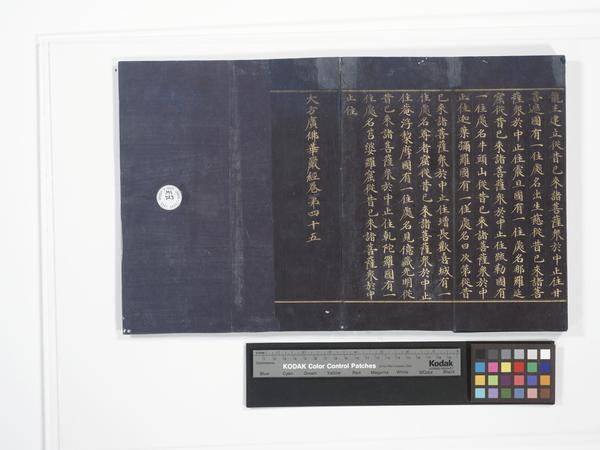 龍王建立從昔已來諸菩薩衆於中止住甘
菩遮國有一住處名出生慈從昔已來諸菩
薩衆於中止住震旦國有一住處名那羅延
窟從昔已來諸菩薩衆於中止住疏勒國有
一住處名牛頭山從昔已來諸菩薩衆於中
止住迦葉彌羅國有一住處名曰次第從昔
已來諸菩薩衆於中止住增長歡喜城有一
住處名尊者窟從昔已來諸菩薩衆於中止
住菴浮梨摩國有一住處名見億藏光明從
昔已來諸菩薩衆於中止住乾陀羅國有一
住處名苫婆羅窟從昔已來諸菩薩衆於中
止住
大方廣佛華嚴經卷第四十五
MS
KODAK Color Control Patches
Kodak
Blue Cyan Green Yellow Red Magenta White 3/Color Black